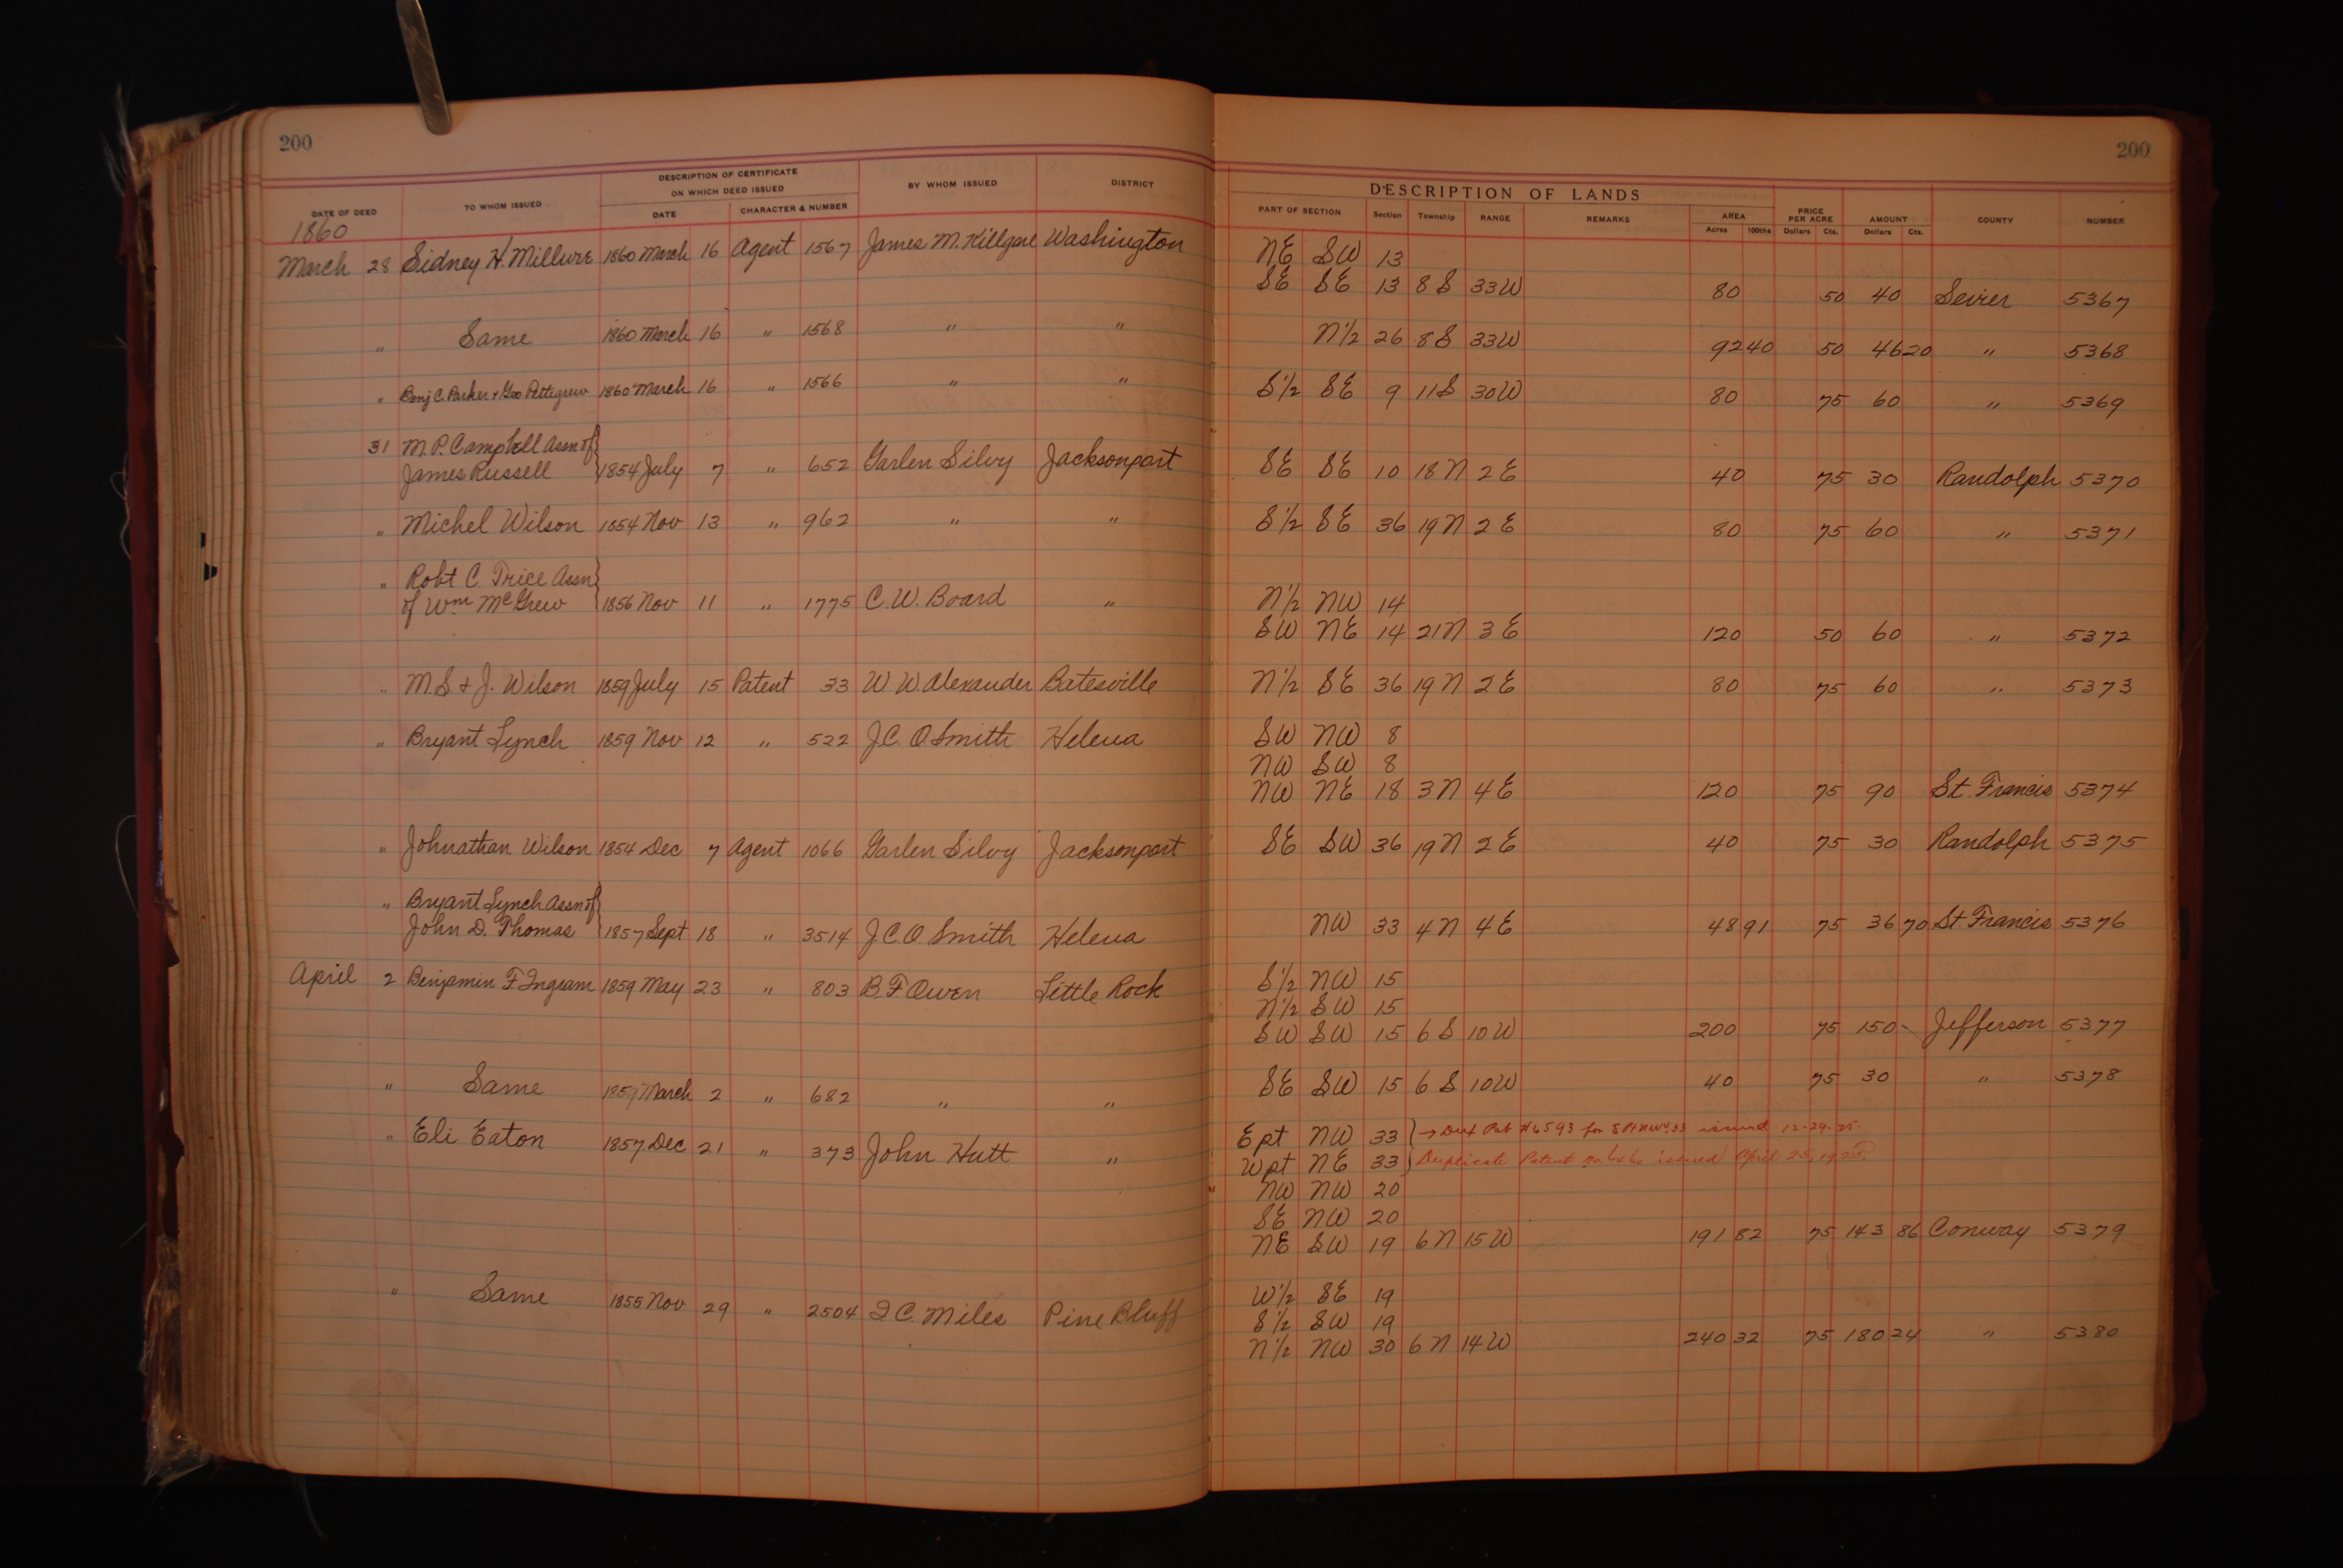 200
DESCRIPTION OF CERTIFICATE
ON WHICH DEED ISSUED
DATE OF DEED TO WHOM ISSUED DATE CHARACTER & NUMBER BY WHOM ISSUED DISTRICT
1860
March 28 Sidney H. Millure 1860 March 16 Agent 1567 James M. Killgore Washington
„ Same 1860 March 16 „ 1568 „ „
„ Benj C. Parker & Geo Pettigrew 1860 March 16 „ 1566 „ „
31 M. P. Campbell Assn of
James Russell 1854 July 7 „ 652 Garlen Silvy Jacksonport
„ Michel Wilson 1854 Nov 13 „ 962 „ „
„ Robt C. Trice Assn
of Wm McGrew 1856 Nov 11 „ 1775 C. W. Board „
„ M. S & J. Wilson 1859 July 15 Patent 33 W W. Alexander Batesville
„ Bryant Lynch 1859 Nov 12 „ 522 J. C. O Smith Helena
„ Johnathan Wilson 1854 Dec 7 Agent 1066 Garlen Silvy Jacksonport
„ Bryant Lynch Assn of
John D. Thomas 1857 Sept 18 „ 3514 J. C. O. Smith Helena
April 2 Benjamin F Ingram 1859 May 23 „ 803 B. F Owen Little Rock
„ Same 1859 March 2 „ 682 „ „
„ Eli Eaton 1857 Dec 21 „ 373 John Hutt „
„ Same 1855 Nov 29 „ 2504 I. C. Miles Pine Bluff
200
DESCRIPTION OF LANDS
PART OF SECTION Section Township RANGE REMARKS AREA PRICE PER ACRE AMOUNT COUNTY NUMBER
Acres 100ths Dollars Cts. Dollars Cts.
NE SW 13
SE SE 13 8 S 33W 80 50 40 Sevier 5367
N½ 26 8 S 33W 92 40 50 46 20 „ 5368
S½ SE 9 11 S 30W 80 75 60 „ 5369
SE SE 10 18 N 2 E 40 75 30 Randolph 5370
S½ SE 36 19 N 2 E 80 75 60 „ 5371
N½ NW 14
SW NE 14 21 N 3 E 120 50 60 „ 5372
N½ SE 36 19 N 2 E 80 75 60 „ 5373
SW NW 8
NW SW 8
NW NE 18 3 N 4 E 120 75 90 St. Francis 5374
SE SW 36 19 N 2 E 40 75 30 Randolph 5375
NW 33 4 N 4 E 48 91 75 36 70 St. Francis 5376
S½ NW 15
N½ SW 15
SW SW 15 6 S 10 W 200 75 150 - Jefferson 5377
SE SW 15 6 S 10W 40 75 30 „ 5378
E pt NW 33 → Pat #6593 for E Pt NW 33 issued 12-24-25
W pt NE 33 Duplicate Patent No. issued April 25, 1925
NW NW 20
SE NW 20
NE SW 19 6 N 15 W 191 82 75 143 86 Conway 5379
W½ SE 19
S½ SW 19
N½ NW 30 6 N 14 W 240 32 75 180 24 „ 5380